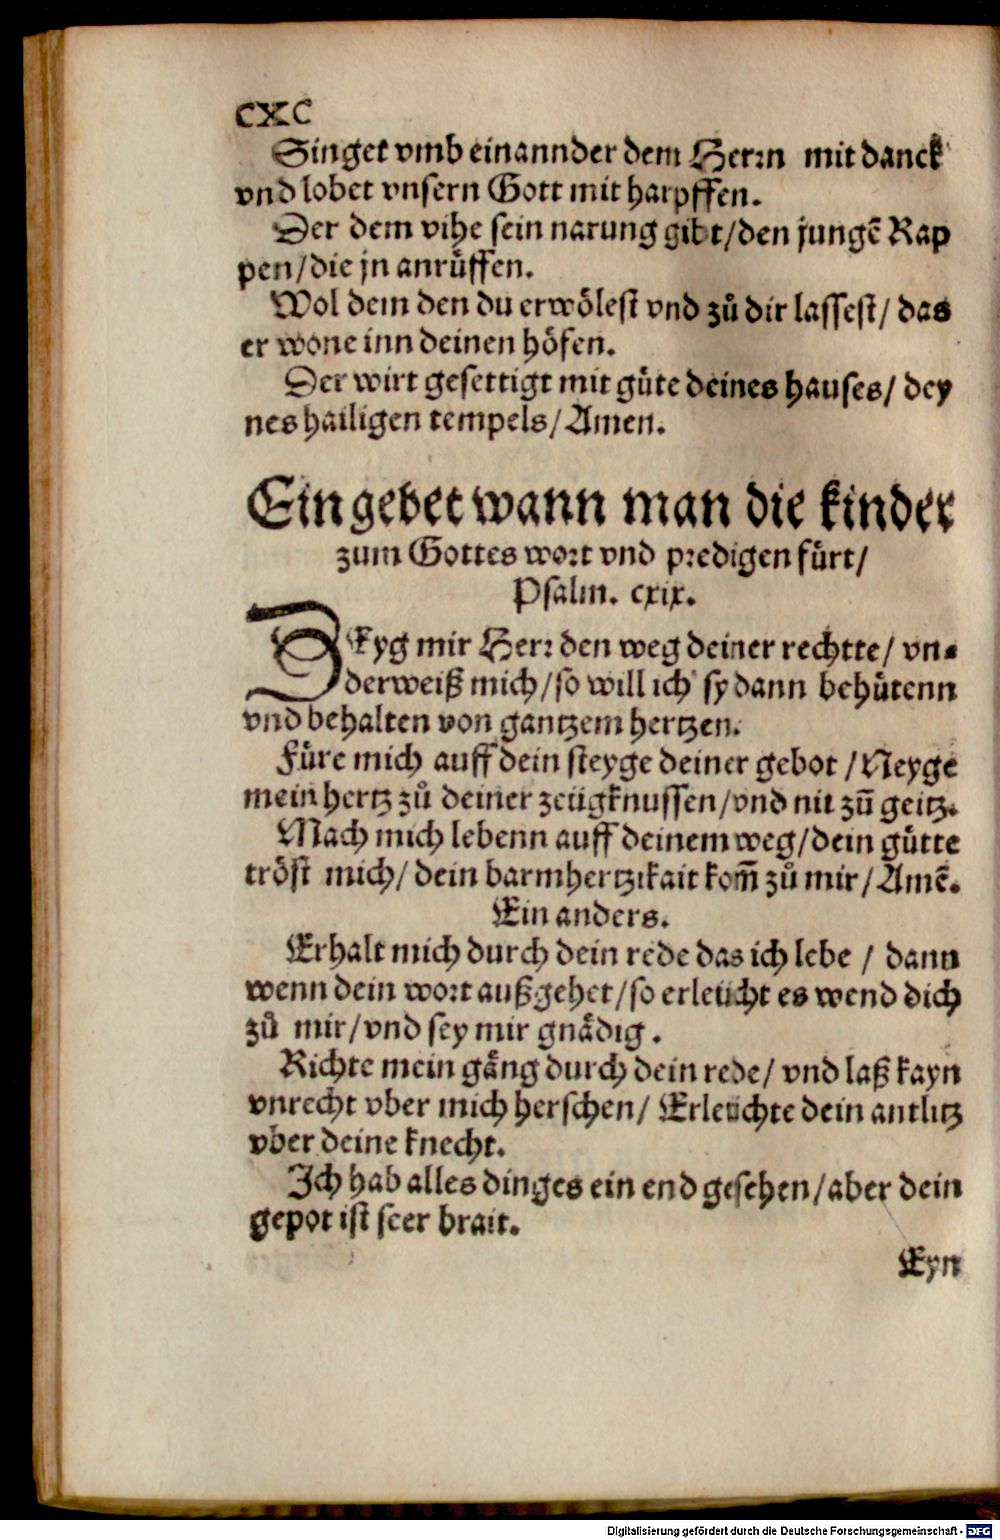 CXC
Singet vmb einannder dem Herrn mit danck
vnd lobet vnsern Gott mit harpffen.
Der dem vihe sein narung gibt/den jungē Rap
pen/die jn anrůffen.
Wol dem den du erwölest vnd zů dir lassest/ das
er wone inn deinen höfen.
Der wirt gesettigt mit güte deines hauses/ dey
nes hailigen tempels/Amen.
Ein gebet wann man die kinder
zum Gottes wort vnd predigen fürt/
Psalm. cxix.
ZEyg mir Herr den weg deiner rechtte/ vn-
derweiß mich/so will ich sy dann behütenn
vnd behalten von gantzem hertzen.
Füre mich auff dein steyge deiner gebot /Neyge
mein hertz zů deiner zeügknussen/vnd nit zū geitz.
Mach mich lebenn auff deinem weg/dein gütte
tröst mich/ dein barmhertzikait kom̄ zů mir/Amē.
Ein anders.
Erhalt mich durch dein rede das ich lebe / dann
wenn dein wort außgehet/so erleücht es wend dich
zů mir/vnd sey mir gnädig.
Richte mein gäng durch dein rede/ vnd laß kayn
vnrecht vber mich herschen/ Erleüchte dein antlitz
vber deine knecht.
Ich hab alles dinges ein end gesehen/aber dein
gepot ist seer brait.
Eyn
Digitalisierung gefördert durch die Deutsche Forschungsgemeinschaft - DFG